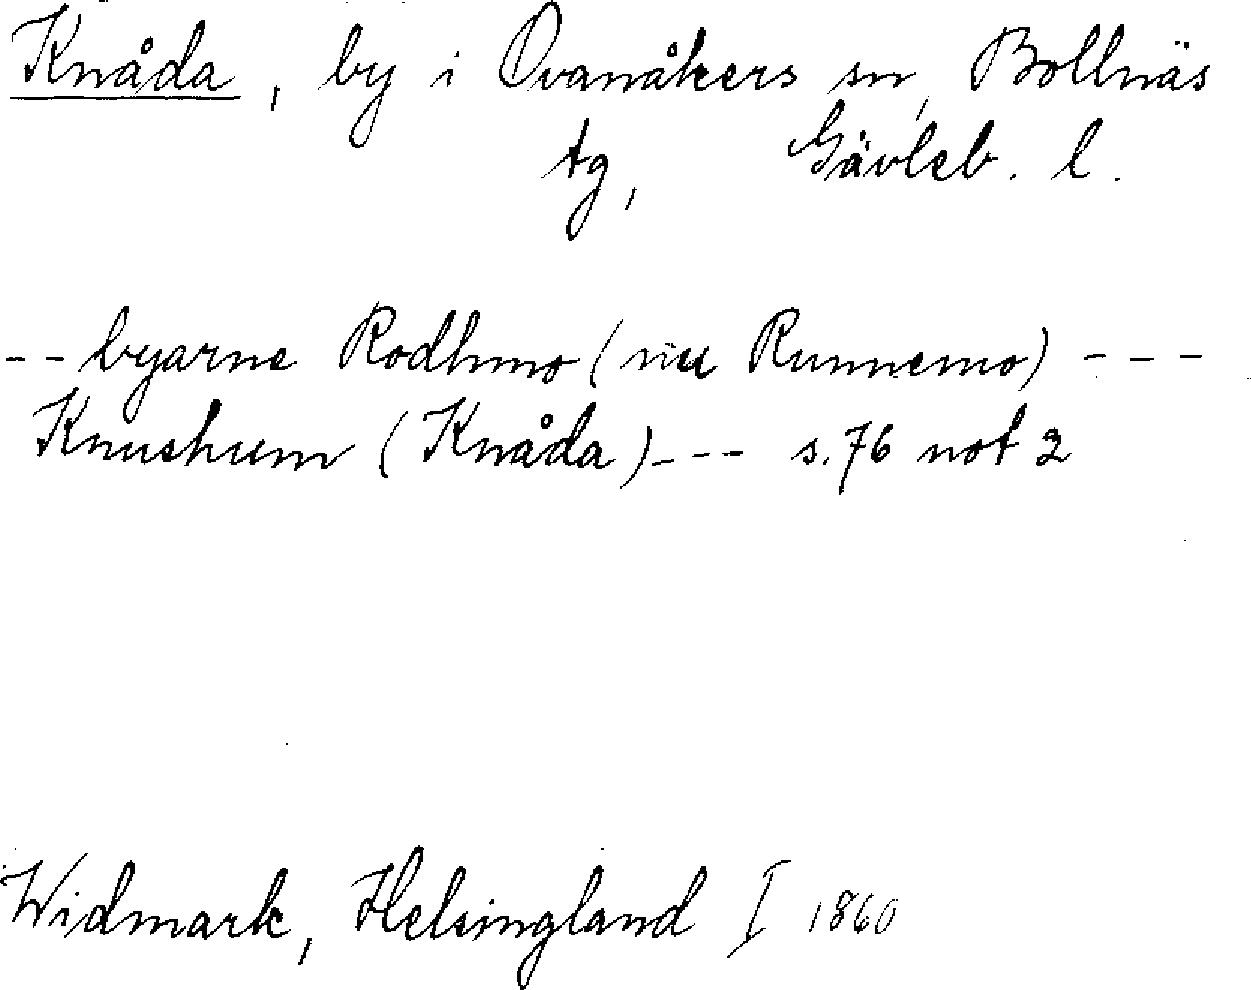 Knåda, by i Ovanåkers sn, Bollnäs
tg, Gävleb. l.
-- byarne Rodhmo (nu Runnemo) ---
Knushum (Knåda) --- s. 76 not 2
Widmark, Helsingland I 1860